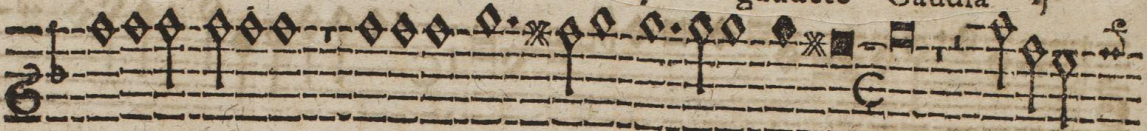 gaudete Gaudia